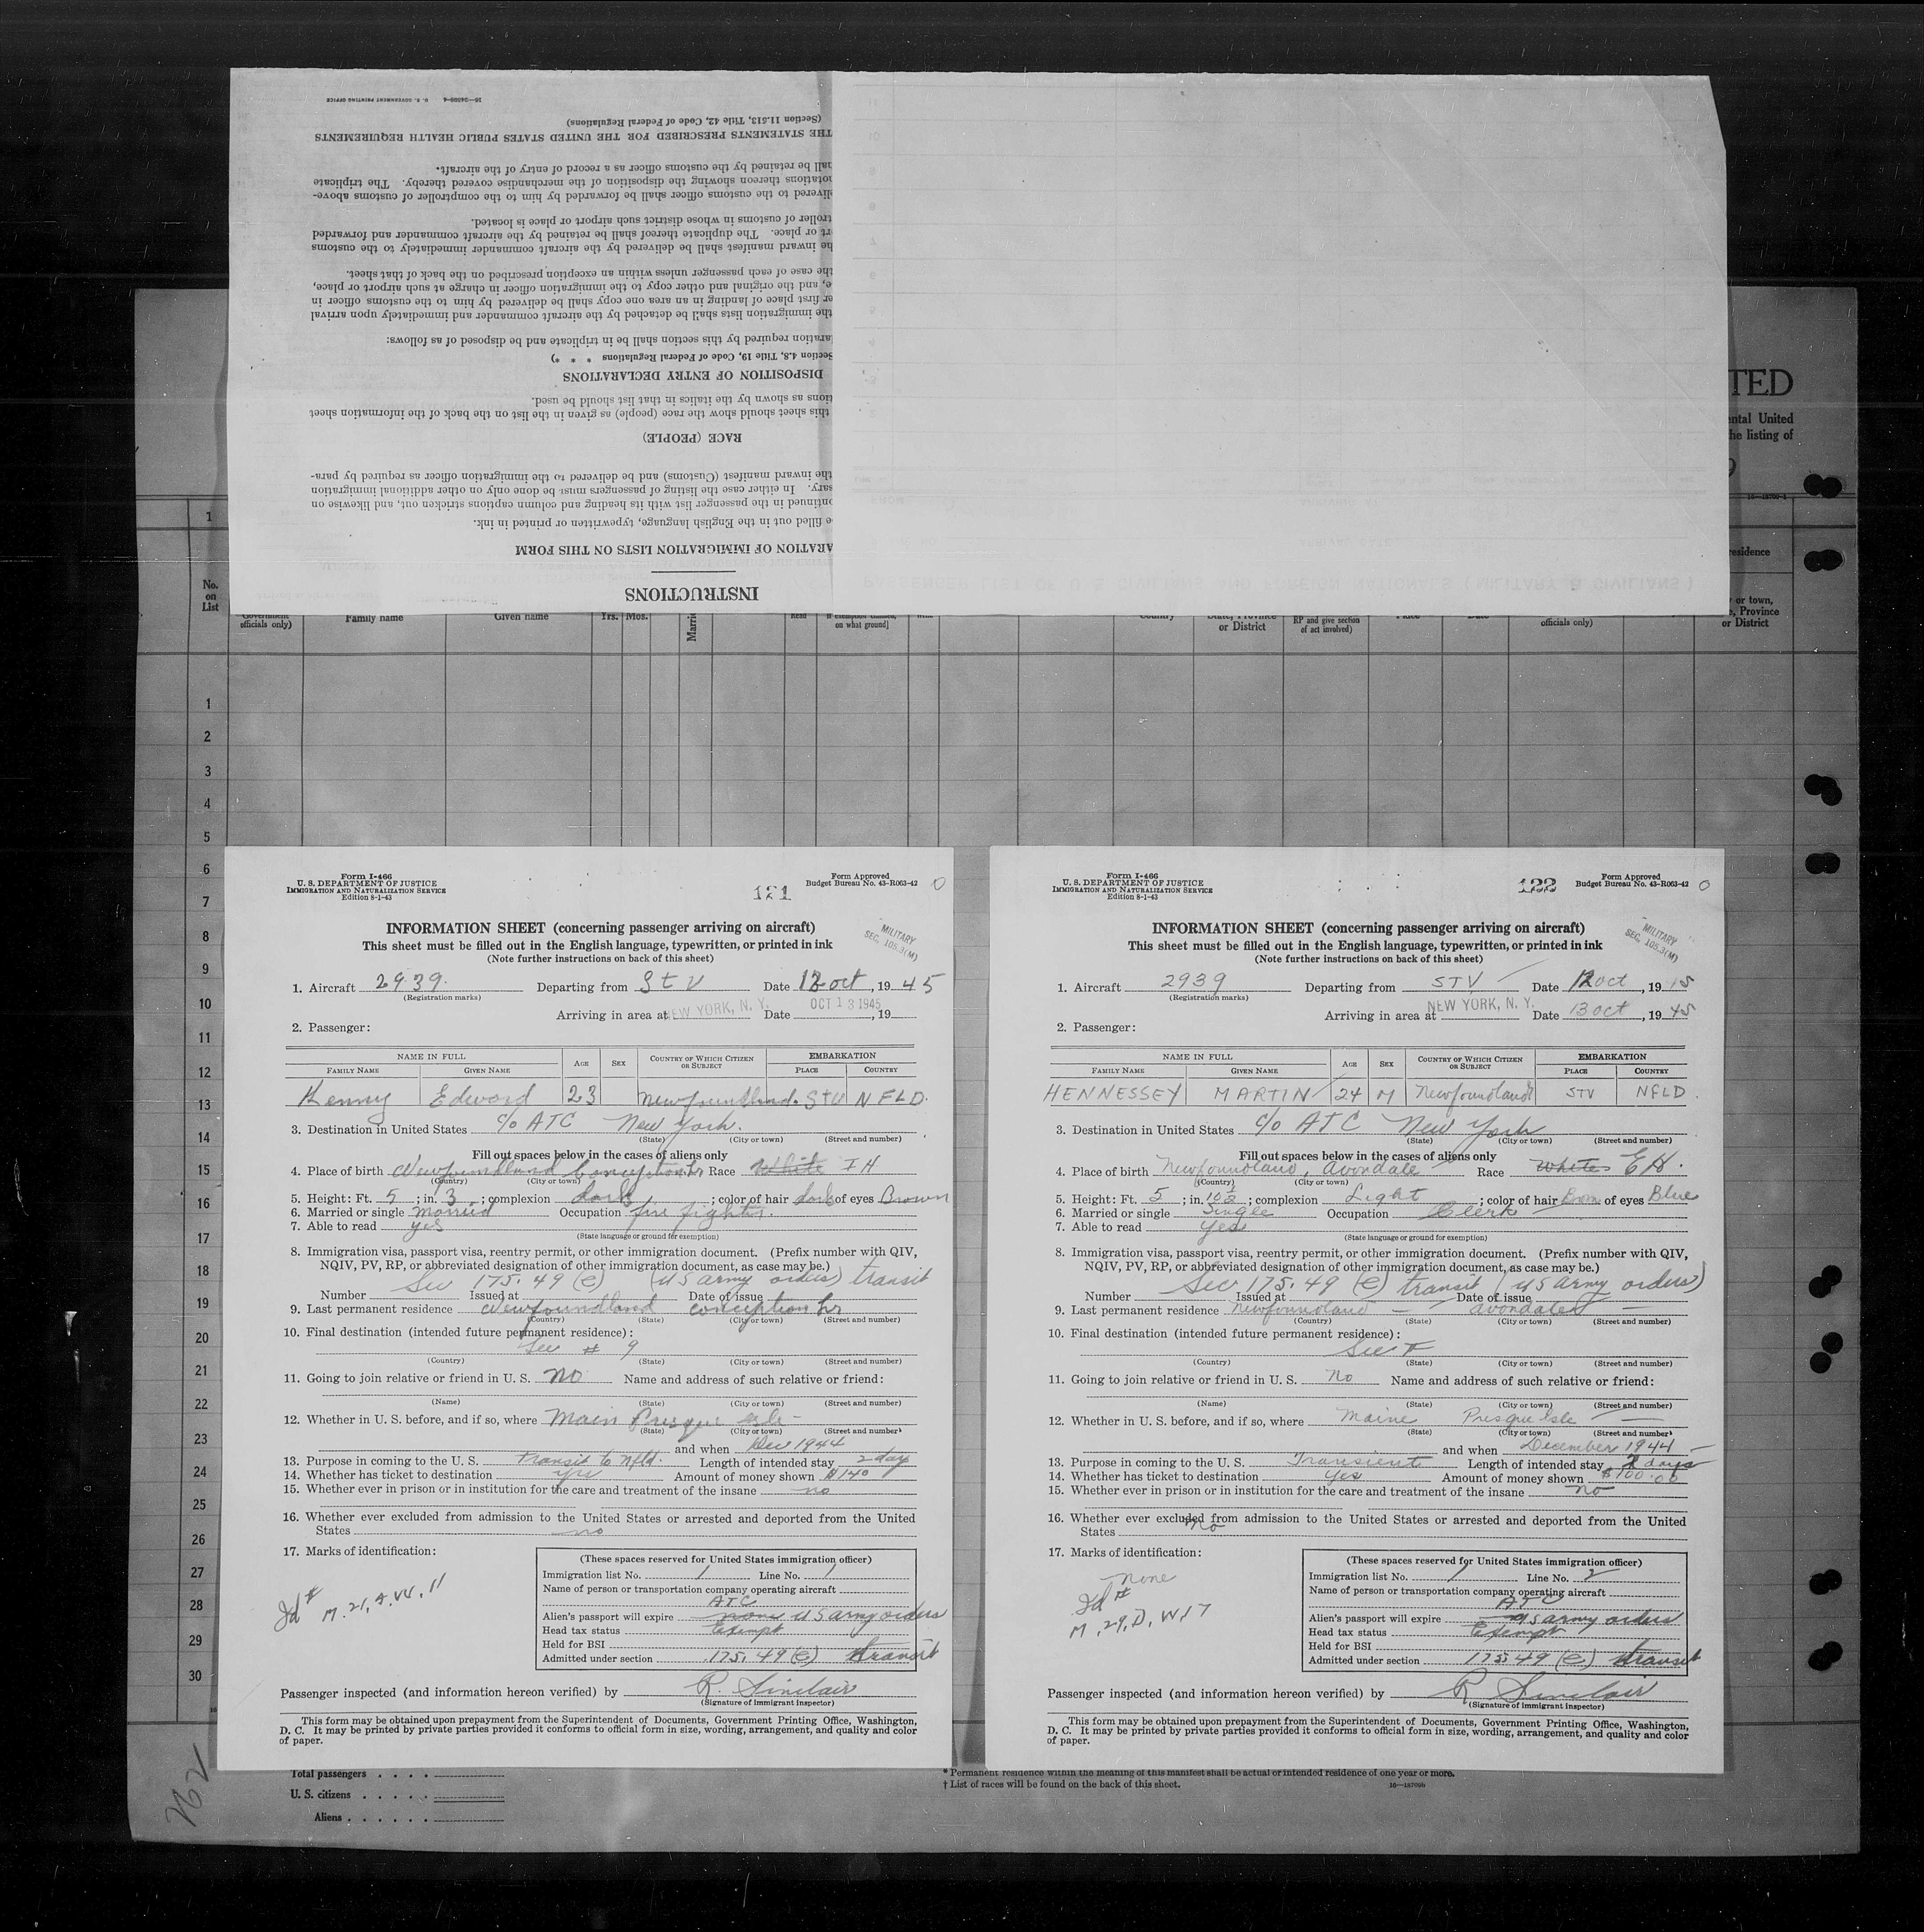 16—24508-4 U. S. GOVERNMENT PRINTING OFFICE
(Section 11.513, Title 42, Code of Federal Regulations)
THE STATEMENTS PRESCRIBED FOR THE UNITED STATES PUBLIC HEALTH REQUIREMENTS
all be retained by the customs officer as a record of entry of the aircraft.
notations thereon showing the disposition of the merchandise covered thereby. The triplicate
livered to the customs officer shall be forwarded by him to the comptroller of customs above-
troller of customs in whose district such airport or place is located.
rt or place. The duplicate thereof shall be retained by the aircraft commander and forwarded
he inward manifest shall be delivered by the aircraft commander immediately to the customs
the case of each passenger unless within an exception prescribed on the back of that sheet.
e, and the original and other copy to the immigration officer in charge at such airport or place,
er first place of landing in an area one copy shall be delivered by him to the customs officer in
the immigration lists shall be detached by the aircraft commander and immediately upon arrival
laration required by this section shall be in triplicate and be disposed of as follows:
Section 4.8, Title 19, Code of Federal Regulations * * *)
DISPOSITION OF ENTRY DECLARATIONS
tions as shown by the italics in that list should be used.
this sheet should show the race (people) as given in the list on the back of the information sheet
RACE (PEOPLE)
the inward manifest (Customs) and be delivered to the immigration officer as required by para-
sary. In either case the listing of passengers must be done only on other additional immigration
ontinued in the passenger list with its heading and column captions stricken out, and likewise on
e filled out in the English language, typewritten or printed in ink.
ARATION OF IMMIGRATION LISTS ON THIS FORM
INSTRUCTIONS
PASSENGER LIST OF U S CIVILIANS AND FOREIGN NATIONALS (MILITARY & CIVILIANS)
TED
ental United
he listing of
16—18700-1
1
residence
No. on List
officials only)
Family name
Given name
Yrs. Mos.
Read
on what ground]
or District
RP and give section of act involved)
officials only)
or town,
, Province
or District
1
2
3
4
5
6
7
8
9
10
11
12
13
14
15
16
17
18
19
20
21
22
23
24
25
26
27
28
29
30
Form I-466
U. S. DEPARTMENT OF JUSTICE
IMMIGRATION AND NATURALIZATION SERVICE
Edition 8-1-43
121
Form Approved
Budget Bureau No. 43-R063-42
0
INFORMATION SHEET (concerning passenger arriving on aircraft)
This sheet must be filled out in the English language, typewritten, or printed in ink
(Note further instructions on back of this sheet)
MILITARY
SEC. 105.3(M)
1. Aircraft 2939. Departing from St V Date 12 oct, 1945
(Registration marks)
Arriving in area at NEW YORK, N. Y. Date OCT 13 1945, 19
2. Passenger:
NAME IN FULL AGE SEX COUNTRY OF WHICH CITIZEN OR SUBJECT EMBARKATION
FAMILY NAME GIVEN NAME PLACE COUNTRY
Kenny Edward 23 Newfoundland. StV NFLD.
3. Destination in United States c/o ATC New York.
(State) (City or town) (Street and number)
Fill out spaces below in the cases of aliens only
4. Place of birth Newfoundland Conception hr Race White IH
(Country) (City or town)
5. Height: Ft. 5; in. 3; complexion dark; color of hair dark of eyes Brown
6. Married or single married Occupation fire fighter.
7. Able to read yes
(State language or ground for exemption)
8. Immigration visa, passport visa, reentry permit, or other immigration document. (Prefix number with QIV,
NQIV, PV, RP, or abbreviated designation of other immigration document, as case may be.)
Sec 175.49 (e) (US army orders) transit
Number Issued at Date of issue
9. Last permanent residence Newfoundland conception hr
(Country) (State) (City or town) (Street and number)
10. Final destination (intended future permanent residence):
See # 9
(Country) (State) (City or town) (Street and number)
11. Going to join relative or friend in U. S. no Name and address of such relative or friend:
(Name) (State) (City or town) (Street and number)
12. Whether in U. S. before, and if so, where Main Presque isle -
(State) (City or town) (Street and number)
and when Dec 1944
13. Purpose in coming to the U. S. Transit to Nfld. Length of intended stay 2 day
14. Whether has ticket to destination yes Amount of money shown $140
15. Whether ever in prison or in institution for the care and treatment of the insane no
16. Whether ever excluded from admission to the United States or arrested and deported from the United
States no
17. Marks of identification:
Id # M.21,A.W.11
(These spaces reserved for United States immigration officer)
Immigration list No. 1 Line No. 1
Name of person or transportation company operating aircraft
ATC
Alien's passport will expire none US army orders
Head tax status Exempt
Held for BSI
Admitted under section 175.49 (e) transit
Passenger inspected (and information hereon verified) by R. Sinclair
(Signature of immigrant inspector)
This form may be obtained upon prepayment from the Superintendent of Documents, Government Printing Office, Washington,
D. C. It may be printed by private parties provided it conforms to official form in size, wording, arrangement, and quality and color
of paper.
Form I-466
U. S. DEPARTMENT OF JUSTICE
IMMIGRATION AND NATURALIZATION SERVICE
Edition 8-1-43
122
Form Approved
Budget Bureau No. 43-R063-42
0
INFORMATION SHEET (concerning passenger arriving on aircraft)
This sheet must be filled out in the English language, typewritten, or printed in ink
(Note further instructions on back of this sheet)
MILITARY
SEC. 105.3(M)
1. Aircraft 2939 Departing from STV Date 12 oct, 1945
(Registration marks)
Arriving in area at NEW YORK, N. Y. Date 13 oct, 1945
2. Passenger:
NAME IN FULL AGE SEX COUNTRY OF WHICH CITIZEN OR SUBJECT EMBARKATION
FAMILY NAME GIVEN NAME PLACE COUNTRY
HENNESSEY MARTIN 24 M Newfoundland STV NFLD.
3. Destination in United States c/o ATC New York
(State) (City or town) (Street and number)
Fill out spaces below in the cases of aliens only
4. Place of birth Newfoundland, Avondale Race White EH.
(Country) (City or town)
5. Height: Ft. 5; in. 10 1/2; complexion Light; color of hair Brown of eyes Blue
6. Married or single Single Occupation Clerk
7. Able to read Yes
(State language or ground for exemption)
8. Immigration visa, passport visa, reentry permit, or other immigration document. (Prefix number with QIV,
NQIV, PV, RP, or abbreviated designation of other immigration document, as case may be.)
Sec 175.49 (e) transit (US army orders)
Number Issued at Date of issue
9. Last permanent residence Newfoundland — Avondale —
(Country) (State) (City or town) (Street and number)
10. Final destination (intended future permanent residence):
See
(Country) (State) (City or town) (Street and number)
11. Going to join relative or friend in U. S. No Name and address of such relative or friend:
(Name) (State) (City or town) (Street and number)
12. Whether in U. S. before, and if so, where Maine Presque Isle —
(State) (City or town) (Street and number)
and when December 1944 —
13. Purpose in coming to the U. S. Transient Length of intended stay 2 days
14. Whether has ticket to destination Yes Amount of money shown $100.00
15. Whether ever in prison or in institution for the care and treatment of the insane no
16. Whether ever excluded from admission to the United States or arrested and deported from the United
States No
17. Marks of identification:
none
Id #
M.29,D,W17
(These spaces reserved for United States immigration officer)
Immigration list No. 1 Line No. 2
Name of person or transportation company operating aircraft
ATC
Alien's passport will expire US army orders
Head tax status Exempt
Held for BSI
Admitted under section 175.49 (e) transit
Passenger inspected (and information hereon verified) by R Sinclair
(Signature of immigrant inspector)
This form may be obtained upon prepayment from the Superintendent of Documents, Government Printing Office, Washington,
D. C. It may be printed by private parties provided it conforms to official form in size, wording, arrangement, and quality and color
of paper.
Total passengers . . . .
U. S. citizens . . . . .
Aliens . . . . . .
* Permanent residence within the meaning of this manifest shall be actual or intended residence of one year or more.
† List of races will be found on the back of this sheet.
16—18700b